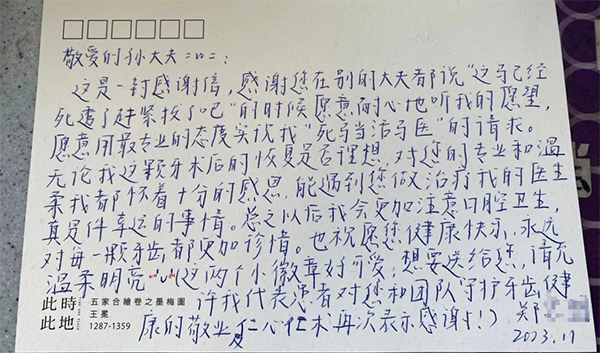 敬爱的孙大夫:
这是一封感谢信,感谢您在别的大夫都说“这马已经
死透了赶紧拔了吧”的时候愿意耐心地听我的愿望,
愿意用最专业的态度实试我“死马当活马医”的请求。
无论我这颗牙术后的恢复是否理想,对您的专业和温
柔我都怀着十分的感恩,能遇到您做治疗我的医生
真是件幸运的事情。总之以后我会更加注意口腔卫生,
对每一颗牙齿都更加珍惜。也祝愿您健康快乐,永远
温柔明亮 这两个小徽章好可爱,想要送给您,请允
许我代表患者对您和团队守护牙齿健
康的敬业及仁心仁术再次表示感谢!)
郑
2023.11
此時
此地
五家合繪卷之墨梅圖
王冕
1287-1359